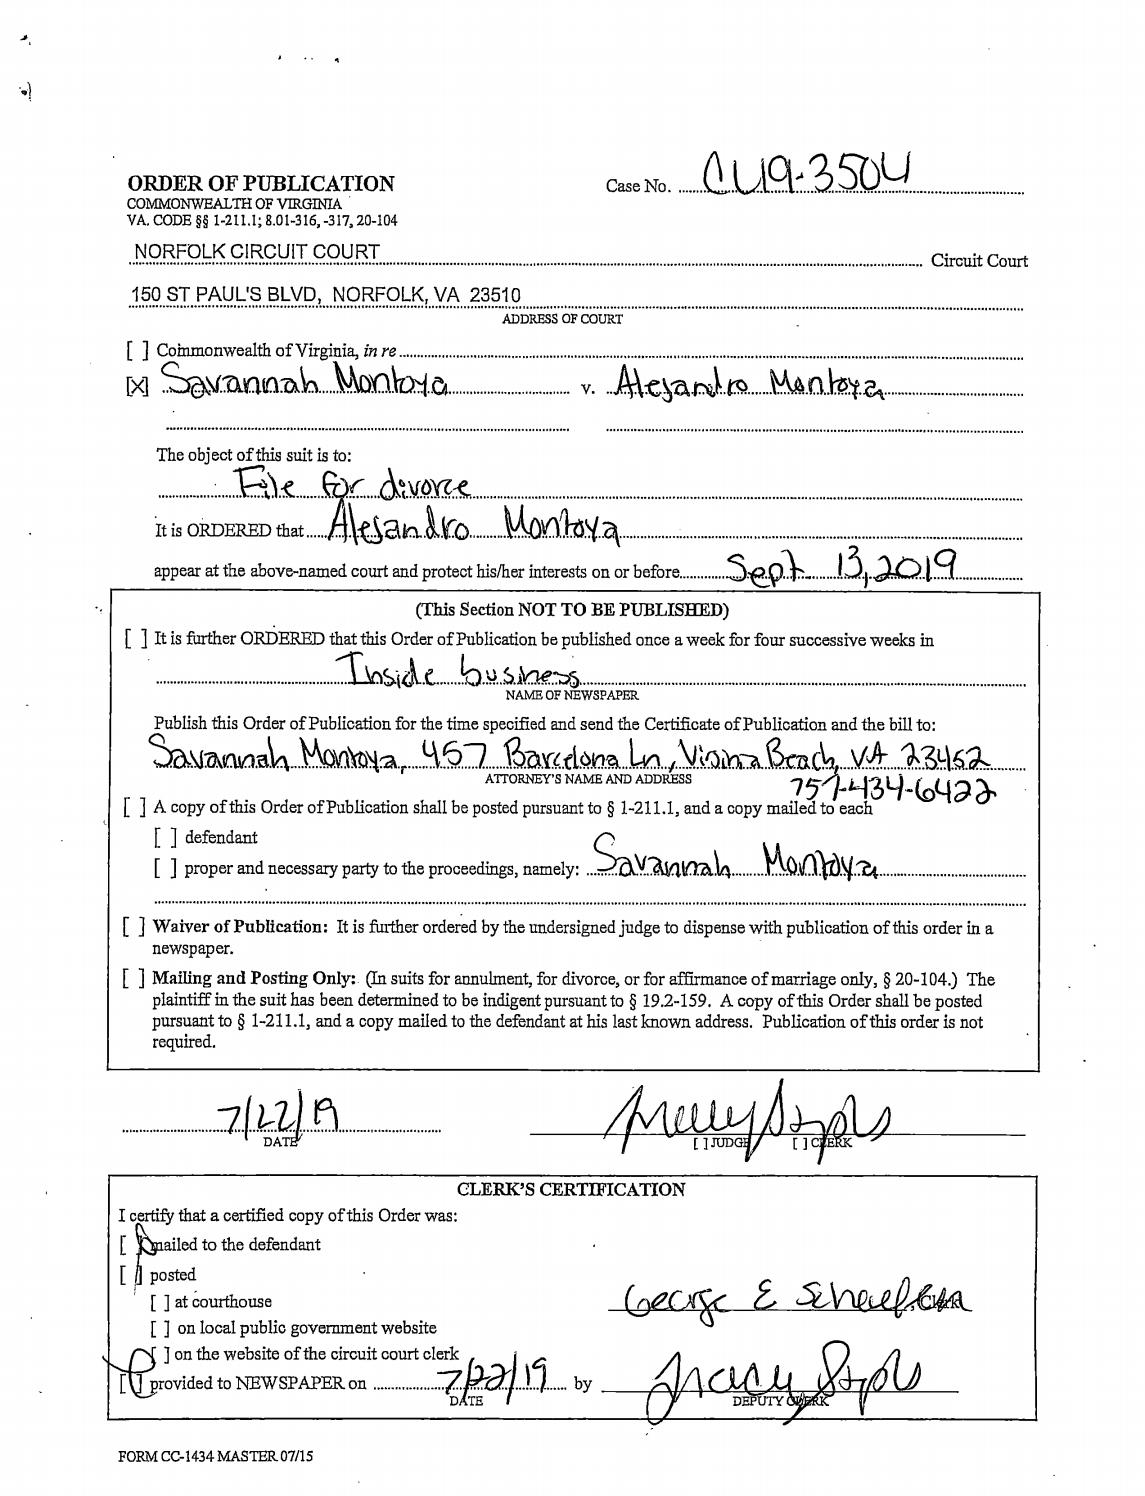 ORDER OF PUBLICATION
Case No. CL19-3504
COMMONWEALTH OF VIRGINIA
VA. CODE §§ 1-211.1; 8.01-316, -317, 20-104
NORFOLK CIRCUIT COURT Circuit Court
150 ST PAUL'S BLVD, NORFOLK, VA 23510
ADDRESS OF COURT
[ ] Commonwealth of Virginia, in re
[X] Savannah Montoya v. Alejandro Montoya
The object of this suit is to:
File for divorce
It is ORDERED that Alejandro Montoya
appear at the above-named court and protect his/her interests on or before Sept 13, 2019
(This Section NOT TO BE PUBLISHED)
[ ] It is further ORDERED that this Order of Publication be published once a week for four successive weeks in
Inside business
NAME OF NEWSPAPER
Publish this Order of Publication for the time specified and send the Certificate of Publication and the bill to:
Savannah Montoya, 457 Barcelona Ln, Virginia Beach, VA 23452
ATTORNEY'S NAME AND ADDRESS
757-434-6422
[ ] A copy of this Order of Publication shall be posted pursuant to § 1-211.1, and a copy mailed to each
[ ] defendant
[ ] proper and necessary party to the proceedings, namely: Savannah Montoya
[ ] Waiver of Publication: It is further ordered by the undersigned judge to dispense with publication of this order in a
newspaper.
[ ] Mailing and Posting Only: (In suits for annulment, for divorce, or for affirmance of marriage only, § 20-104.) The
plaintiff in the suit has been determined to be indigent pursuant to § 19.2-159. A copy of this Order shall be posted
pursuant to § 1-211.1, and a copy mailed to the defendant at his last known address. Publication of this order is not
required.
7/22/19
DATE
[ ] JUDGE [ ] CLERK
CLERK'S CERTIFICATION
I certify that a certified copy of this Order was:
[ ] mailed to the defendant
[ ] posted
[ ] at courthouse
George E Schaefer, Clerk
[ ] on local public government website
[ ] on the website of the circuit court clerk
[ ] provided to NEWSPAPER on 7/22/19 by
DATE
DEPUTY CLERK
FORM CC-1434 MASTER 07/15